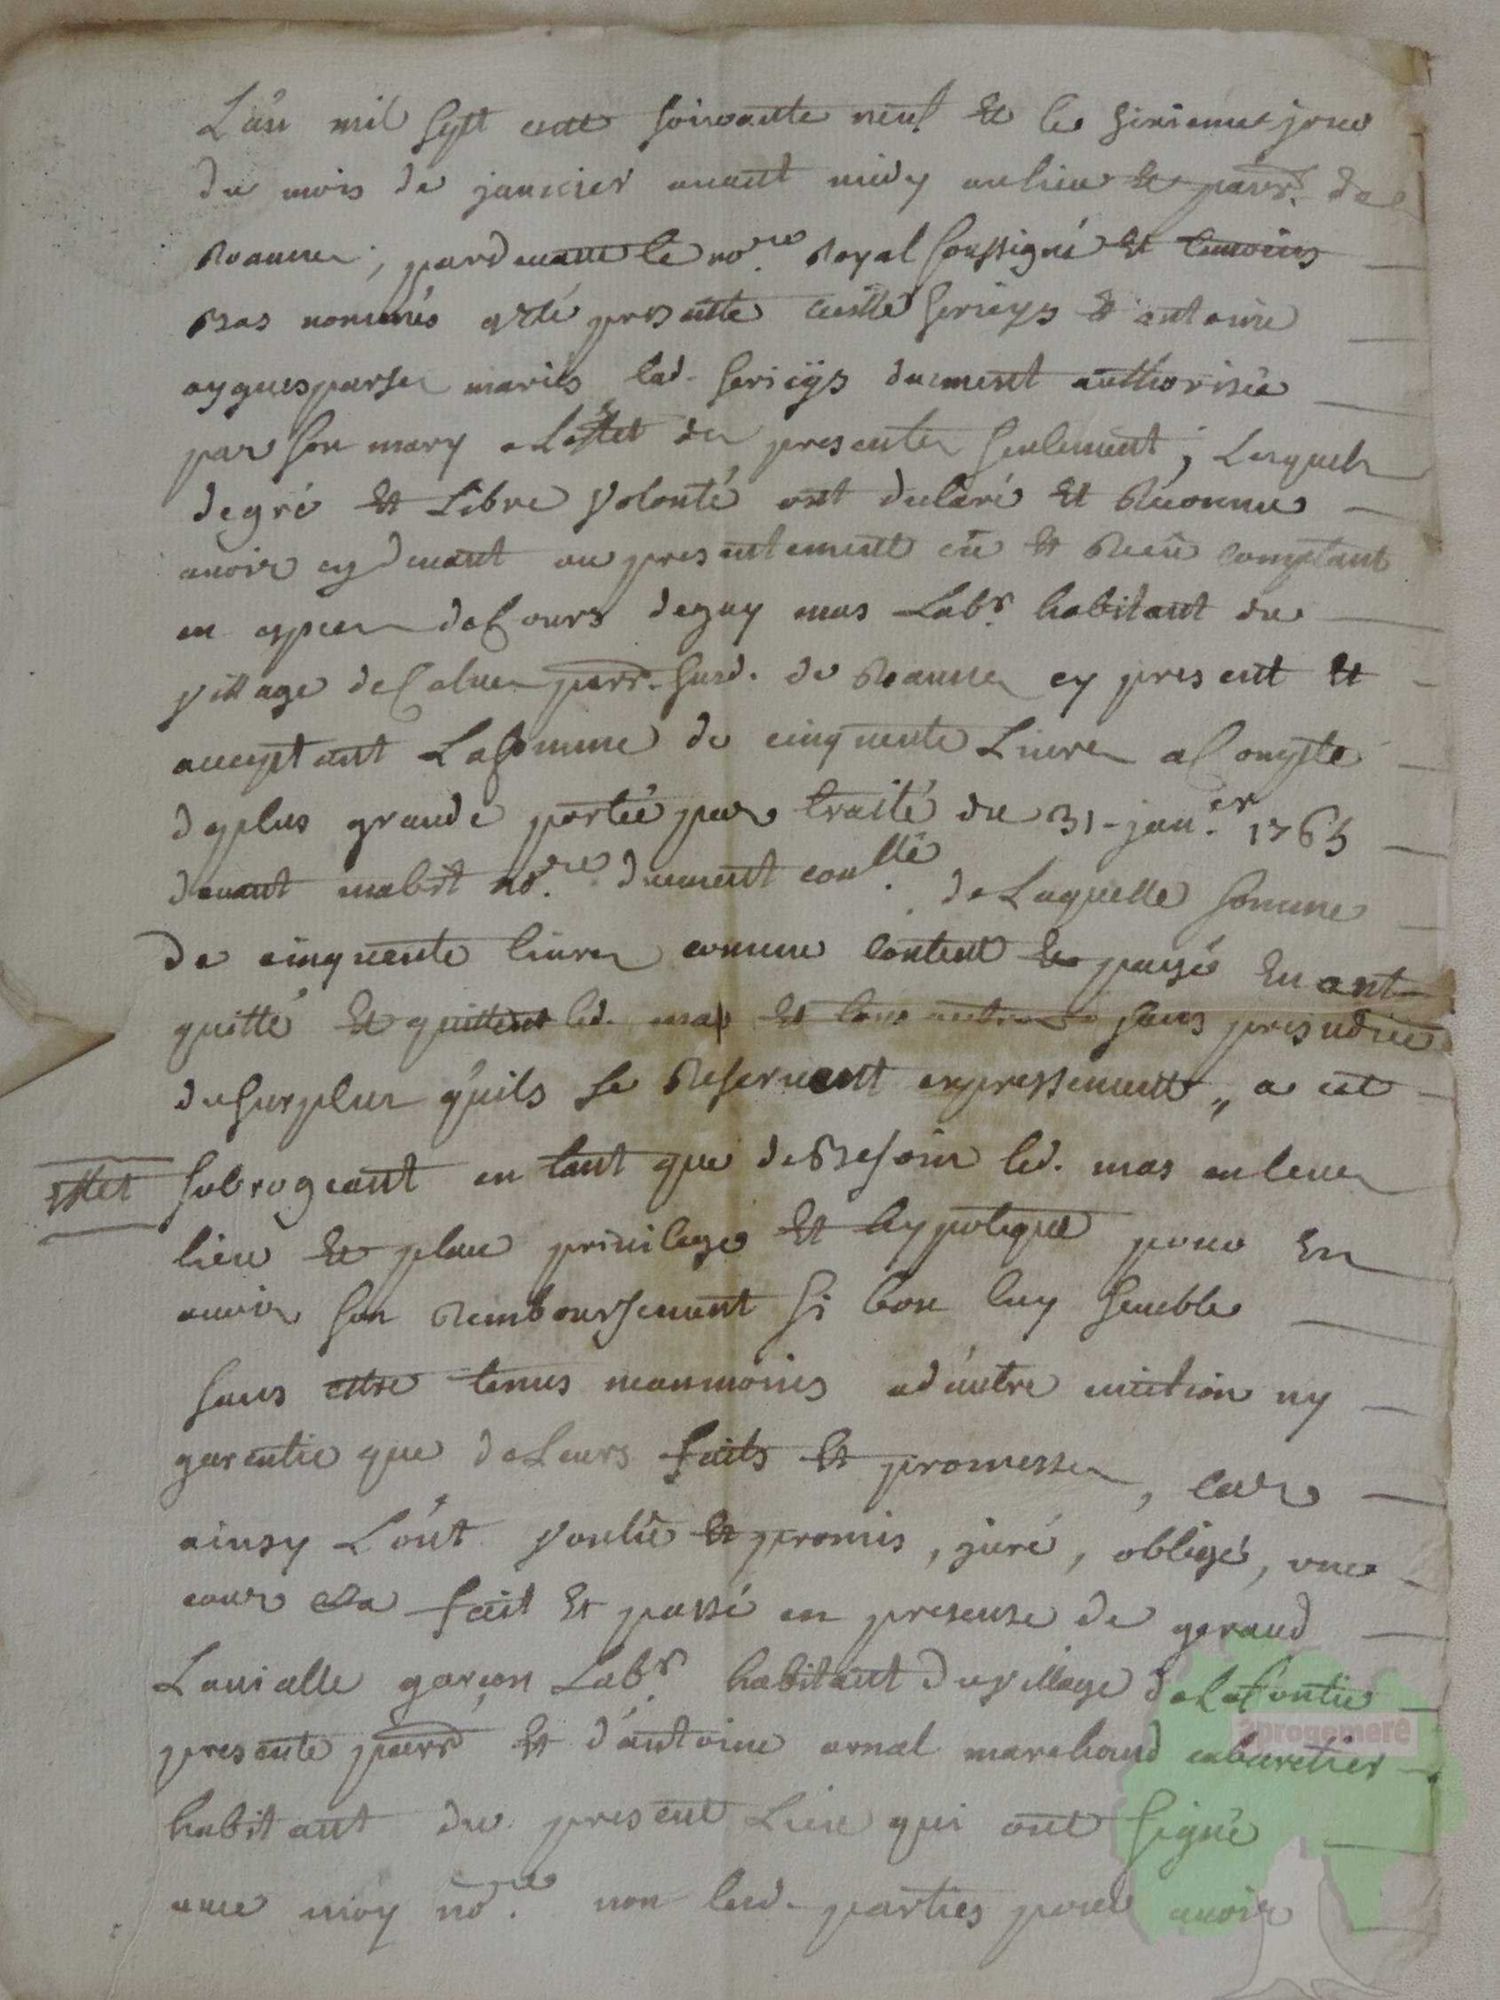 L'an mil sept cent soixante neuf et le sixieme jour
du mois de janvier avant midy au lieu et parr. de
Roannes, pardevant le no.re Royal soussigné et temoins
Bas nommés a eté presente Sericys et antoine
ayguesparses mariés lad. Sericÿs duement authorisée
par son mary a Leffet des presentes seulement, Lesquels
degré et Libre volonté ont declaré et Reconnu
avoir cy devant ou presentement eü et Receü comptant
en especes deCours deguy mas Lab.r habitant du
village deCalves parr. susd. de Roannes cy present et
acceptant Lasomme de cinquente Livres aCompte
deplus grande portée par traité du 31 jan.er 1765
devant mabit no.re duement con.llé de Laquelle somme
de cinquente livres comme content et payés En ont
quitté et quittent led. mas et tous autres sans prejudice
dusurplus qu'ils se Reservent expressement, a cet
effet subrogeant en tant que deBesoin led. mas en leur
lieu et place privilege et hypoteque pour En
avoir son Remboursement si bon luy semble
sans etre tenus neanmoins ad'autre eviction ny
garentie que deLeurs faits et promesses, car
ainsy L'ont voulu et promis, juré, obligé, une
cour &a fait et passé en presense de geraud
Lavialle garçon Lab.r habitant du village deLaContie
presente parr. et d'antoine arnal marchand cabaretier
habitant du present Lieu qui ont signé
avec moy no.re non lesd. parties pour avoir
aprogemere